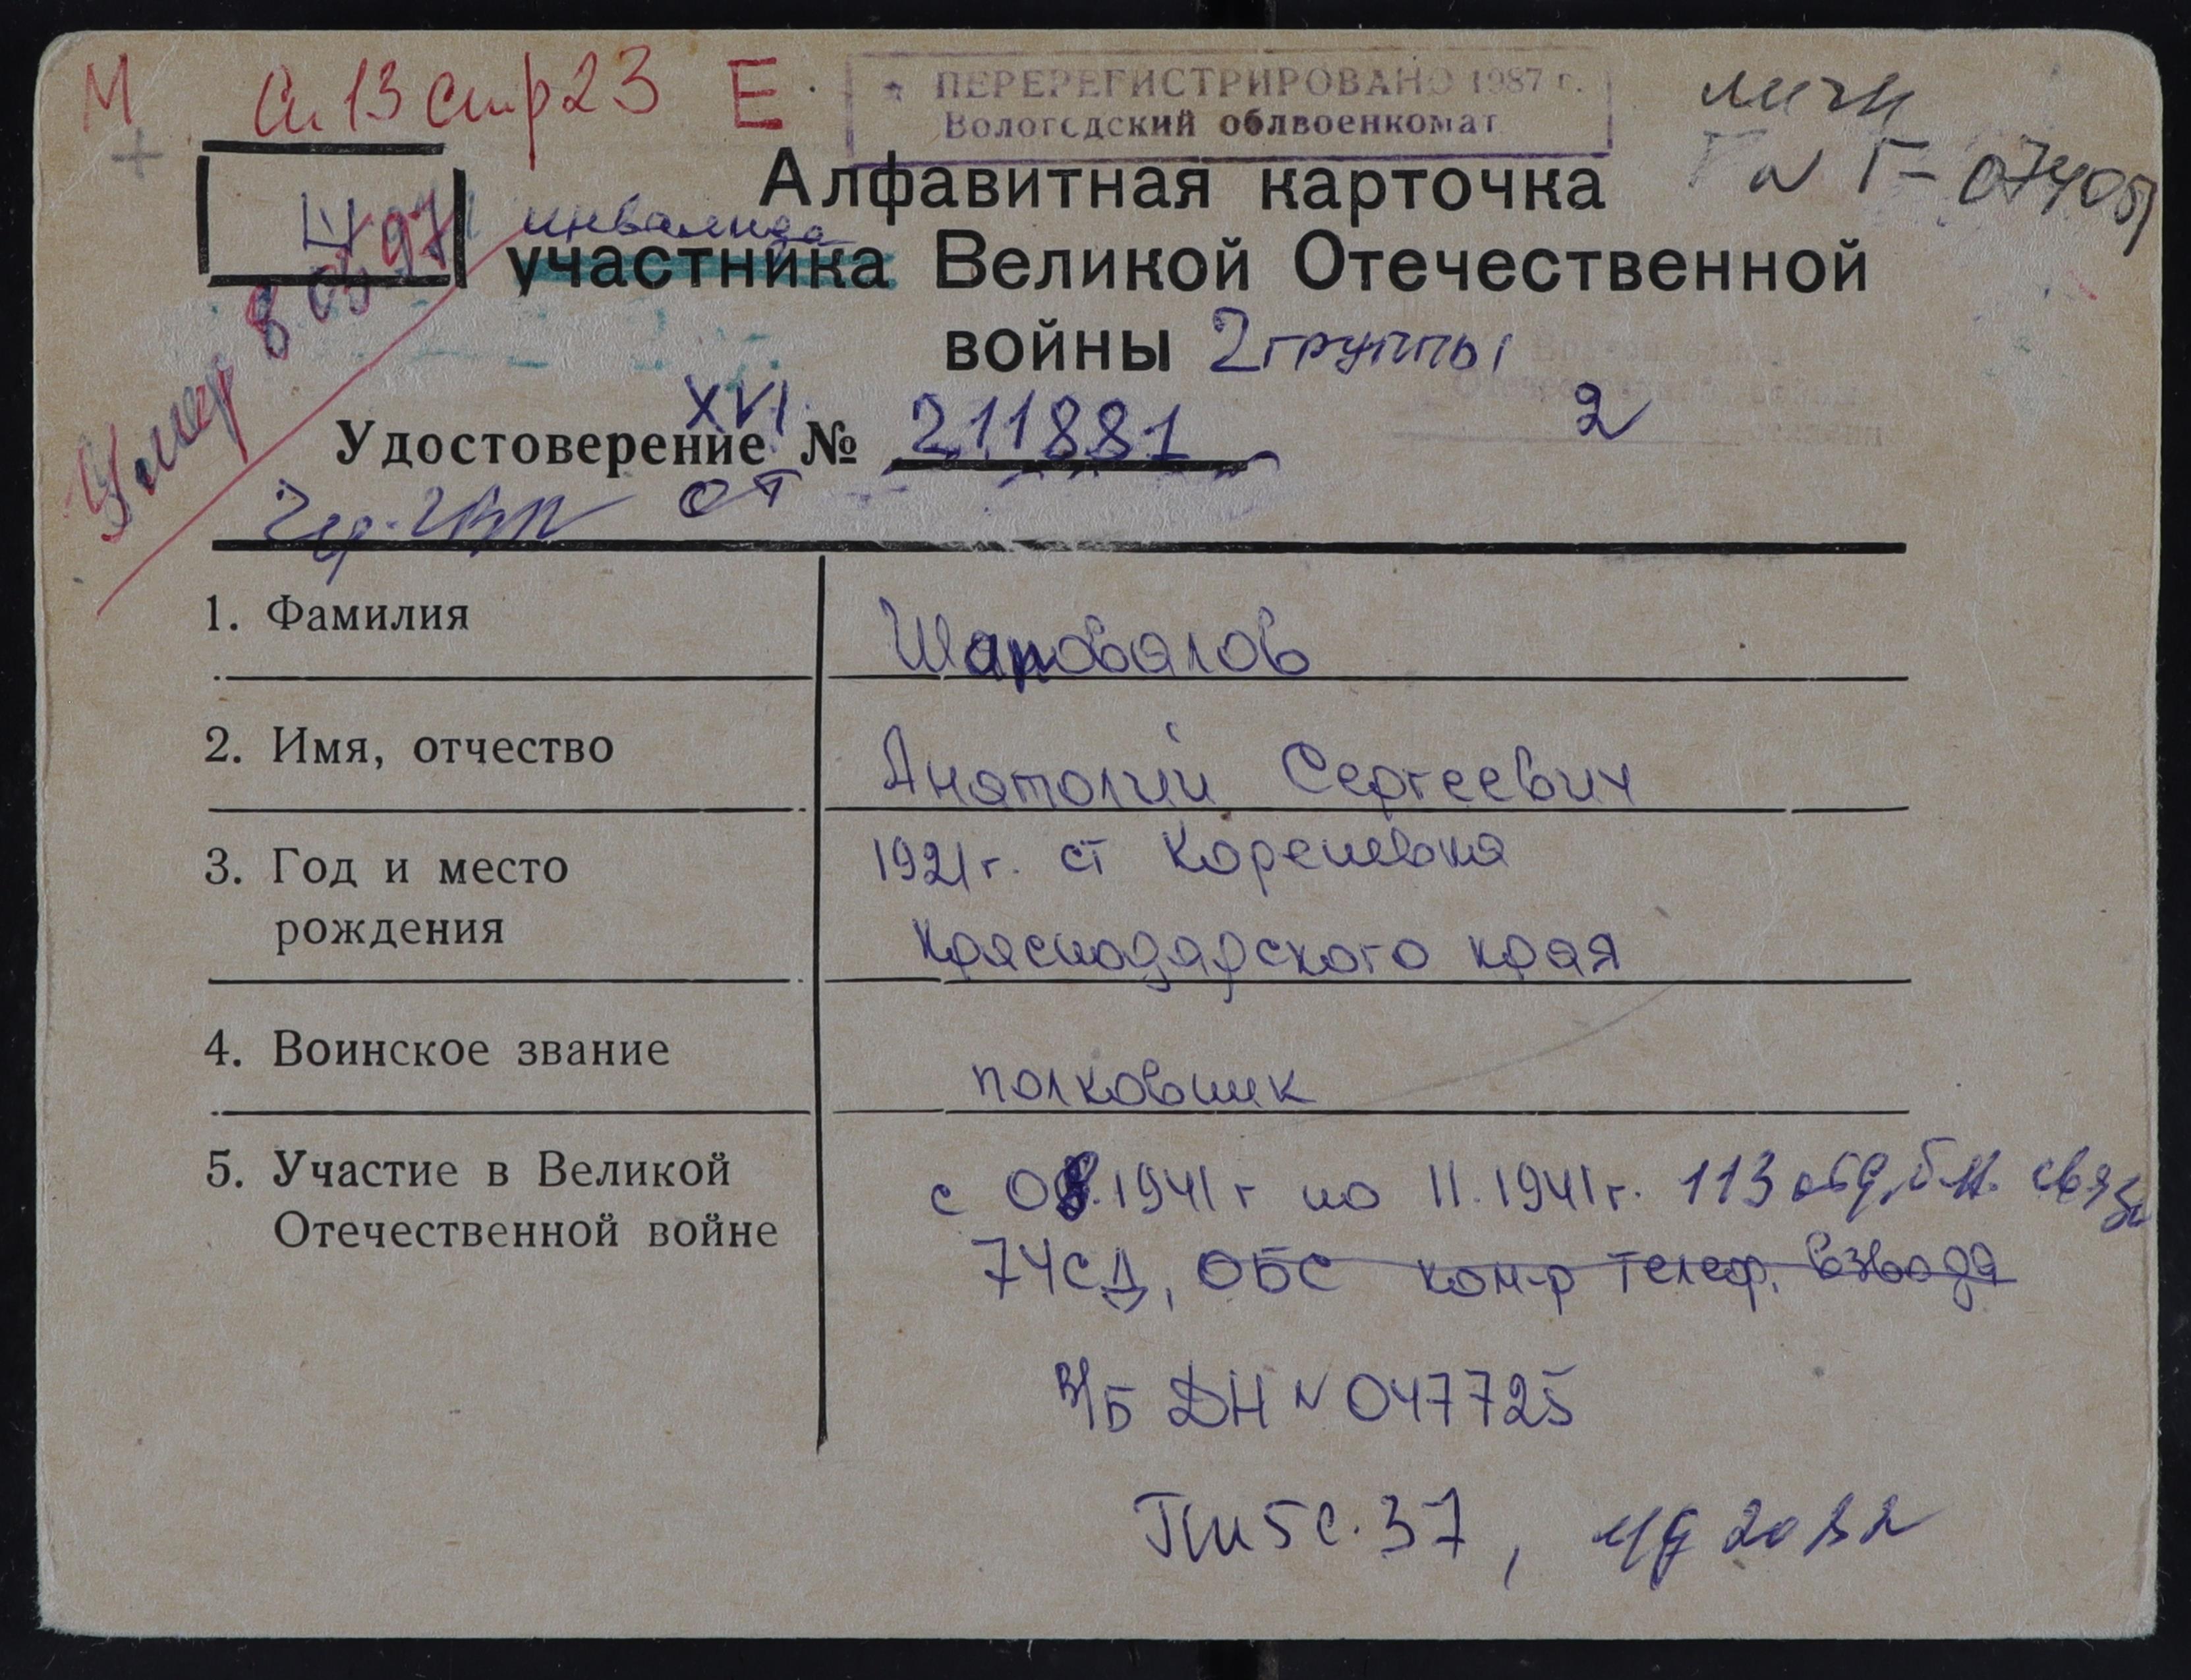 М Сп 13 стр 23 Е
ПЕРЕРЕГИСТРИРОВАНО 1987 г.
Вологодский облвоенкомат
личн
N Г-
Алфавитная карточка
инвалида
участника Великой Отечественной
войны 2 группы
Умер 8 03 97
XVI 2
Удостоверение № 211881
от
1. Фамилия Шаповалов
2. Имя, отчество Анатолий Сергеевич
3. Год и место 1921 г. ст Кореневка
рождения Краснодарского края
4. Воинское звание полковник
5. Участие в Великой с 08.1941 г по 11.1941 г. 113 связи
Отечественной войне 74 СД, ОБС ком-р телеф. взвода
в/б ДН N 047725
5 с. 37,